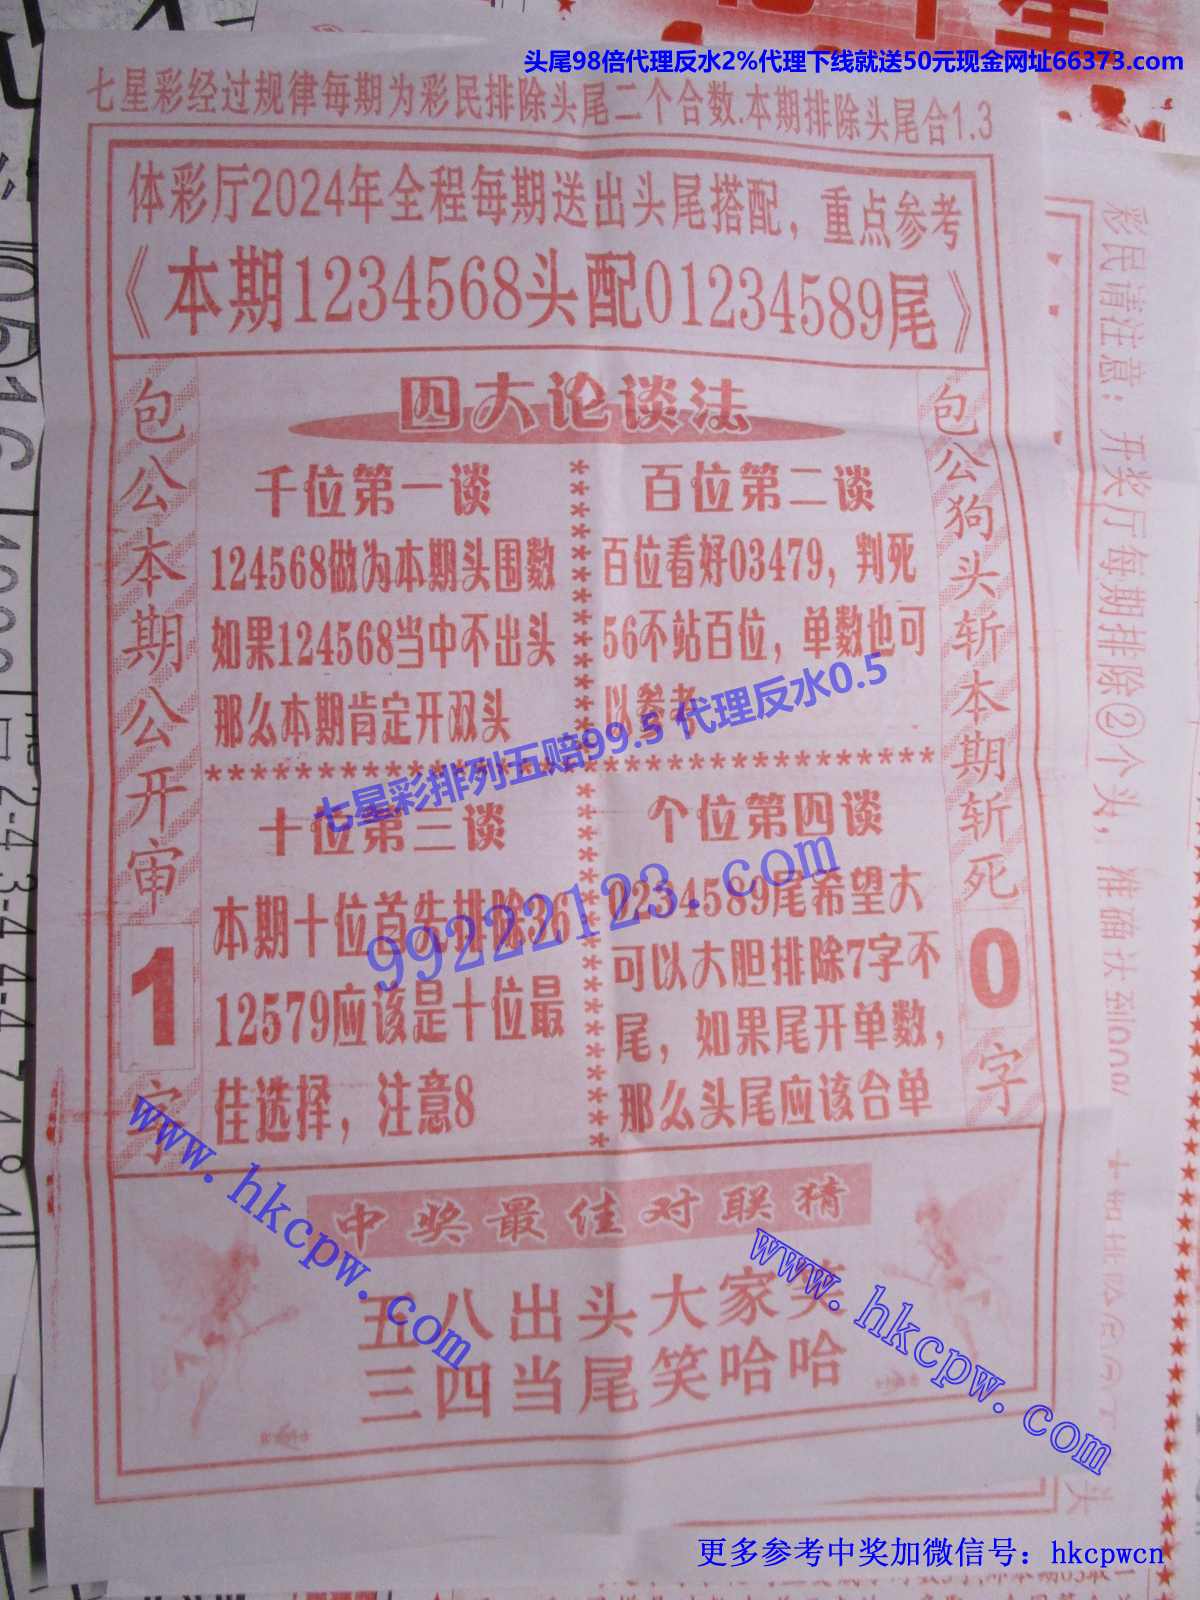 头尾98倍代理反水2%代理下线就送50元现金网址66373.com
七星彩经过规律每期为彩民排除头尾二个合数.本期排除头尾合1.3
体彩厅2024年全程每期送出头尾搭配，重点参考
《本期1234568头配01234589尾》
包公本期公开审1字
四大论谈法
千位第一谈
124568做为本期头围数
如果124568当中不出头
那么本期肯定开双头
百位第二谈
百位看好03479，判死
56不站百位，单数也可
以参考
七星彩排列五赔99.5 代理反水0.5
十位第三谈
本期十位首先排除36
12579应该是十位最
佳选择，注意8
个位第四谈
01234589尾希望大
可以大胆排除7字不
尾，如果尾开单数，
那么头尾应该合单
99222123.com
包公狗头斩本期斩死0字
中奖最佳对联猜
五八出头大家笑
三四当尾笑哈哈
www.hkcpw.com
www.hkcpw.com
彩民请注意：开奖厅每期排除②个头，准确达到100%
更多参考中奖加微信号：hkcpwcn